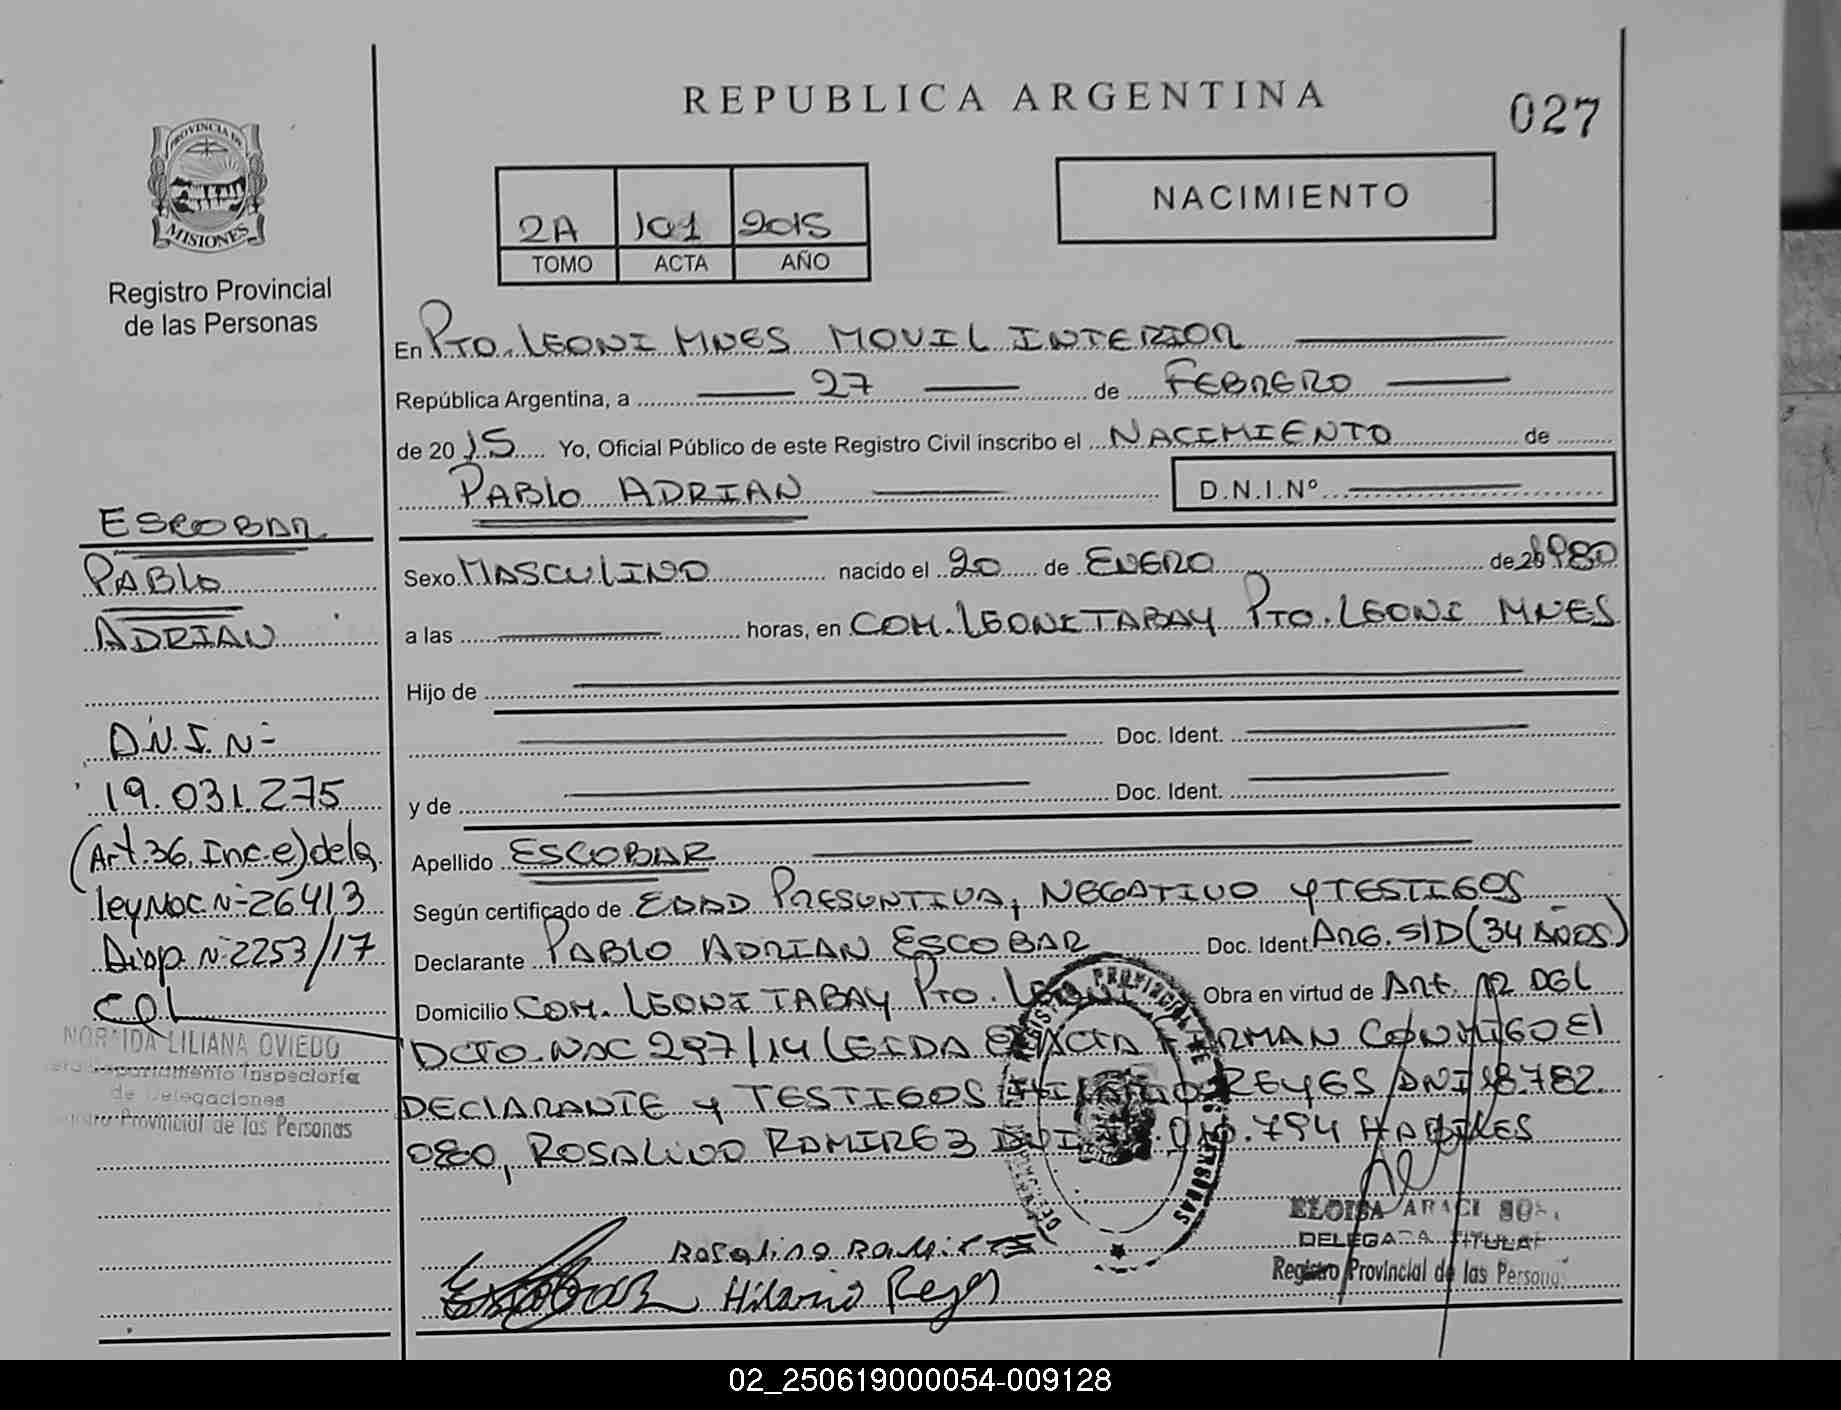 REPUBLICA ARGENTINA
027
PROVINCIA DE
MISIONES
Registro Provincial
de las Personas
NACIMIENTO
2A 101 2015
TOMO ACTA AÑO
En PTO. LEONI MNES MOVIL INTERIOR
República Argentina, a 27 de FEBRERO
de 2015 Yo, Oficial Público de este Registro Civil inscribo el NACIMIENTO de
PABLO ADRIAN D.N.I.Nº
Sexo MASCULINO nacido el 20 de ENERO de 1980
a las horas, en COM. LEONI TABAY PTO. LEONI MNES
Hijo de
Doc. Ident.
y de Doc. Ident.
Apellido ESCOBAR
Según certificado de EDAD PRESUNTIVA, NEGATIVO Y TESTIGOS
Declarante PABLO ADRIAN ESCOBAR Doc. Ident. ARG. S/D (34 AÑOS)
Domicilio COM. LEONI TABAY PTO. LEONI Obra en virtud de ART. 12 DEL
DCTO. NAC 297/14 LEIDA EXACTA FIRMAN CONMIGO El
DECLARANTE Y TESTIGOS HILARIO REYES DNI 18.782
080, ROSALINO RAMIREZ DNI .794 HABILES
Rosalino Ramirez
Escobar Hilario Reyes
ELOISA ARACI
DELEGADA TITULAR
Registro Provincial de las Personas
ESCOBAR
PABLO
ADRIAN
D.N.I. Nº
19.031.275
(Art. 36, Inc. e) de la
ley Nac. Nº 26413
Disp. Nº 2253/17
NORAIDA LILIANA OVIEDO
Departamento Inspectoría
de Delegaciones
Provincial de las Personas
02_250619000054-009128